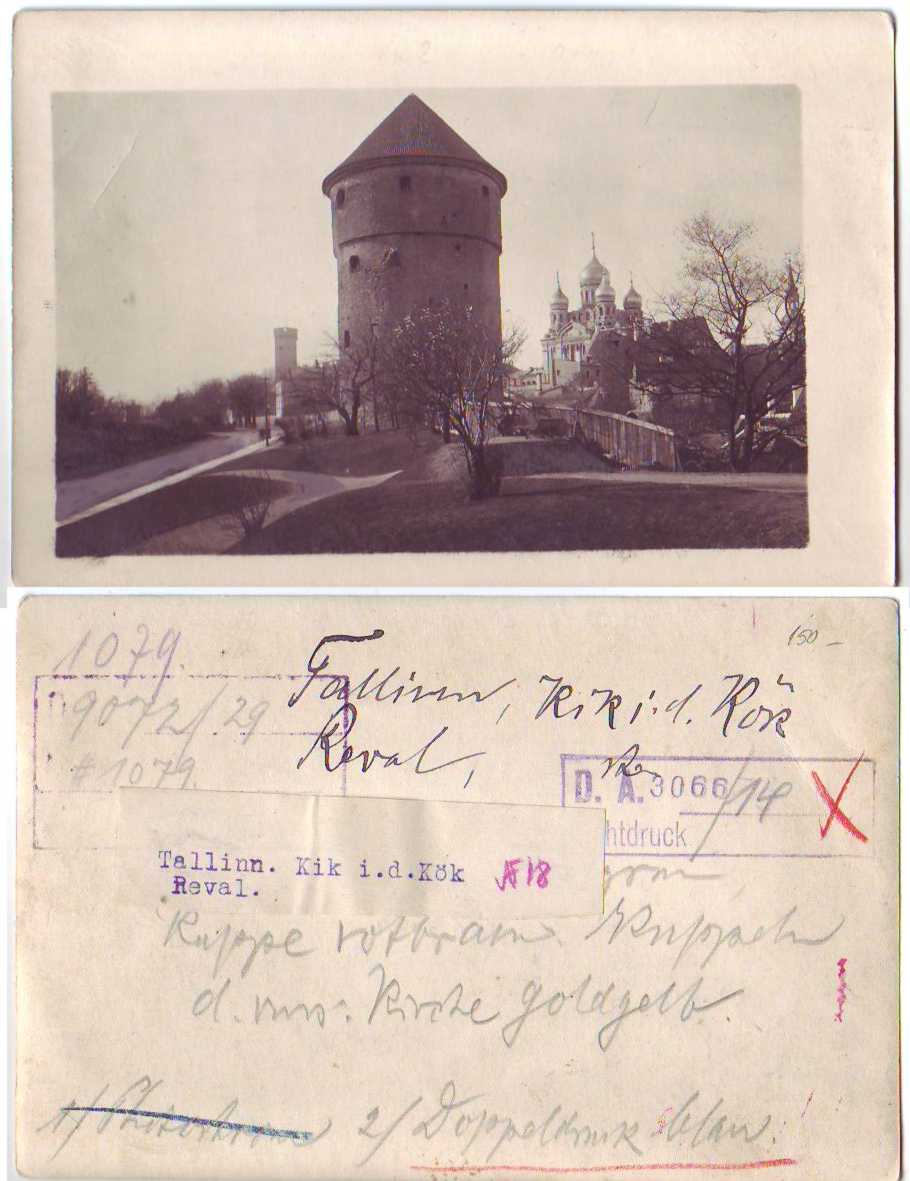 150 -
1079.
9072/29
#1079
Tallinn, Kik i. d. Kök
Reval,
D. A. 3066/14
htdruck
Tallinn. Kik i.d.Kök
Reval.
Kuppe rotbraun. Kuppeln
d. russ. Kirche goldgelb.
1/ 2/ Doppeldruck blau.